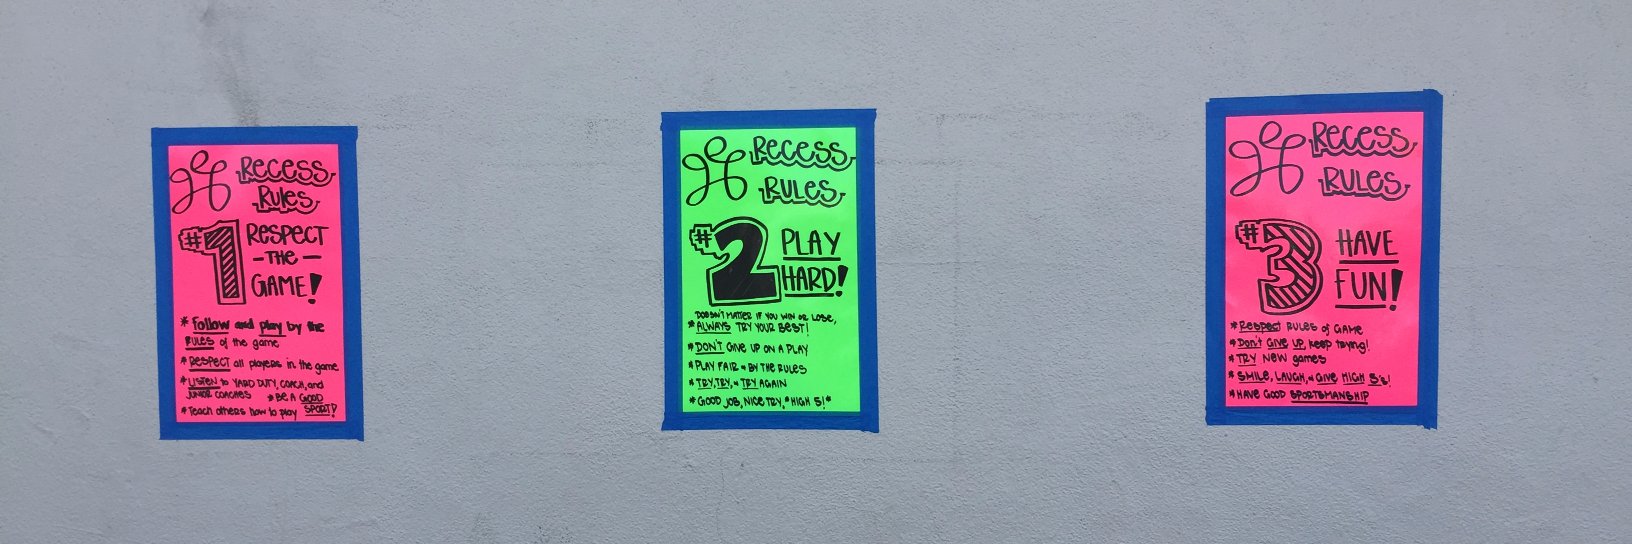 RECESS
RULES
#1 RESPECT
- THE -
GAME!
* Follow and play by the
RULES of the game
* RESPECT all players in the game
* LISTEN to YARD DUTY, COACH, and
JUNIOR COACHES * BE A GOOD
SPORT!
* Teach others how to play
RECESS
RULES
#2 PLAY
HARD!
DOESN'T MATTER IF YOU WIN OR LOSE,
* ALWAYS TRY YOUR BEST!
* DON'T GIVE UP ON A PLAY
* PLAY FAIR + BY THE RULES
* TRY, TRY, + TRY AGAIN
* GOOD JOB, NICE TRY, "HIGH 5!"
RECESS
RULES
#3 HAVE
FUN!
* RESPECT RULES of GAME
* Don't GIVE UP, keep trying!
* TRY NEW games
* SMILE, LAUGH, + GIVE HIGH 5's!
* HAVE GOOD SPORTSMANSHIP